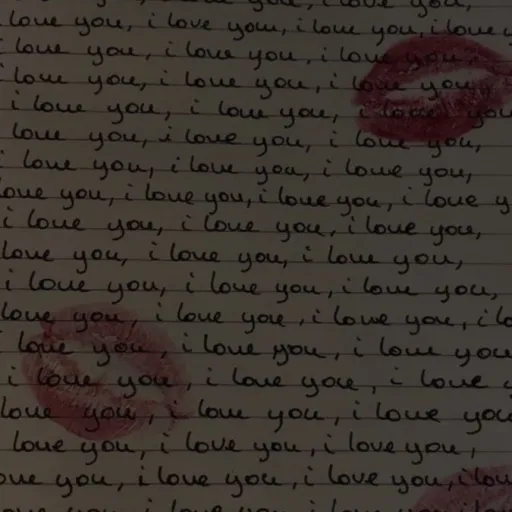 i love you,
love you, i love you, i love you, i love
i love you, i love you, i love you,
i love you, i love you, i love you,
i love you, i love you, i love you
love you, i love you, i love you,
i love you, i love you, i love you,
love you, i love you, i love you, i love y
i love you, i love you, i love you,
love you, i love you, i love you,
i love you, i love you, i love you,
love you, i love you, i love you, i lo
i love you, i love you, i love you
i love you, i love you, i love
love you, i love you, i love you
love you, i love you, i love you,
love you, i love you, i love you, i lov